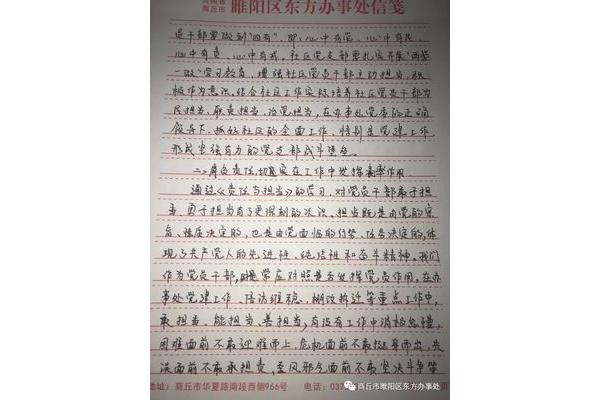 河南省
商丘市 睢阳区东方办事处信笺
员干部要做到“四有”，即：心中有党、心中有民、
心中有责、心中有戒，社区党支部要扎实开展“两学
一做”学习教育，增强社区党员干部主动担当、积
极作为意识，结合社区工作实际培养社区党员干部为
民担当、敢责担当、为党担当，在办事处党委的正确
领导下，抓好社区的全面工作，特别是党建工作，
形成坚强有力的党支部战斗堡垒。
二、肩负责任，切实在工作中发挥表率作用。
通过《责任与担当》的学习，对党员干部敢于担
当、勇于担当有了更深刻的认识。担当既是由党的宗
旨、性质决定的，也是由党面临的形势、任务决定的，体
现了共产党人的先进性、纯洁性和奋斗精神。我们
作为党员干部，应对照是否发挥党员作用。在办
事处党建工作、信访维稳、棚改拆迁等重点工作中，
敢担当、能担当、善担当，有没有工作中消极怠慢，
困难面前不敢迎难而上，危机面前不敢挺身而出，失
误面前不敢承担责，歪风邪气面前不敢坚决斗争等
地址：商丘市华夏路南段西侧966号 电话：037
商丘市睢阳区东方办事处